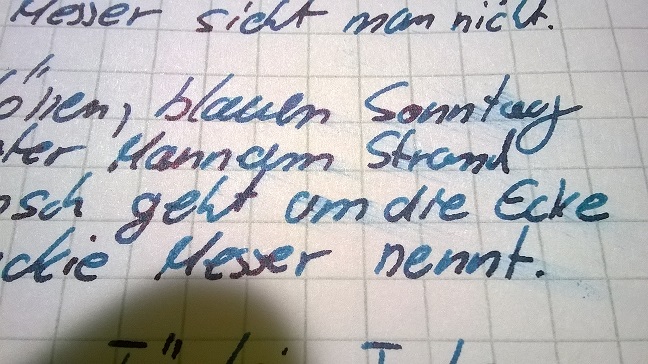 Messer sieht man nicht.
blauen Sonntag
Mann am Strand
geht um die Ecke
Messer nennt.